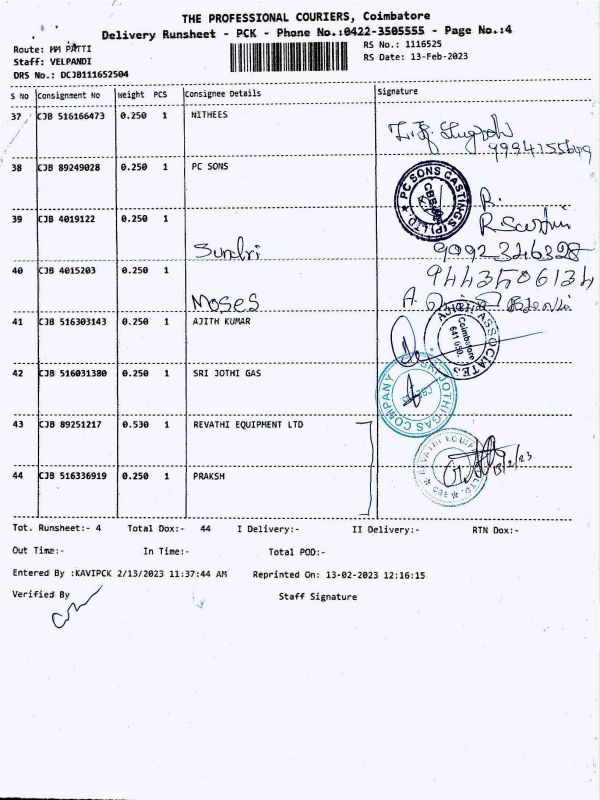 THE PROFESSIONAL COURIERS, Coimbatore
Delivery Runsheet - PCK - Phone No.:0422-3505555 - Page No.:4
Route: MM PATTI
RS No.: 1116525
Staff: VELPANDI
RS Date: 13-Feb-2023
DRS No.: DCJB111652504
S No Consignment No Weight PCS Consignee Details Signature
37 CJB 516166473 0.250 1 NITHEES
38 CJB 89249028 0.250 1 PC SONS
PC SONS CASTINGS (P) LTD.
39 CJB 4019122 0.250 1
Sundri 9092346328
40 CJB 4015203 0.250 1 9443506134
Moses A.
41 CJB 516303143 0.250 1 AJITH KUMAR
ASSOCIATES
Coimbatore
641 050.
42 CJB 516031380 0.250 1 SRI JOTHI GAS
SRI JOTHI GAS COMPANY
43 CJB 89251217 0.530 1 REVATHI EQUIPMENT LTD
REVATHI EQUIP LTD.
CBE
13/2/23
44 CJB 516336919 0.250 1 PRAKSH
Tot. Runsheet:- 4 Total Dox:- 44 I Delivery:- II Delivery:- RTN Dox:-
Out Time:- In Time:- Total POD:-
Entered By :KAVIPCK 2/13/2023 11:37:44 AM Reprinted On: 13-02-2023 12:16:15
Verified By Staff Signature